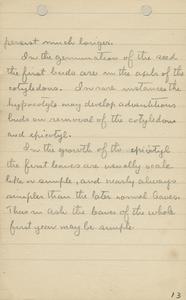 persist much longer.
In the germination of the seed
the first buds are in the axils of the
cotyledons. In rare instances the
hypocotyls may develop adventitious
buds on removal of the cotyledons
and epicotyl.
In the growth of the epicotyl
the first leaves are usually scale
like or simple, and nearly always
simpler than the later normal leaves.
Thus in Ash the leaves of the whole
first year may be simple.
13